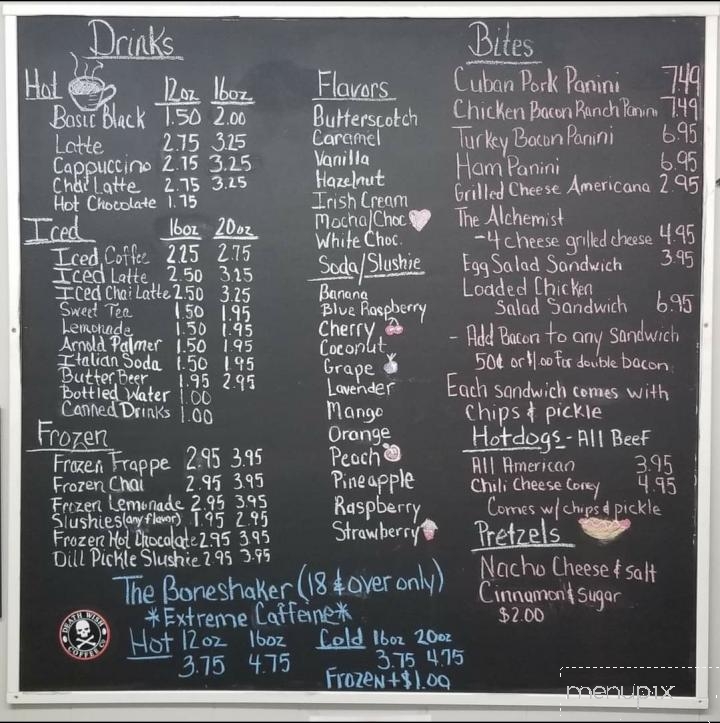 Drinks
Hot 12oz 16oz
Basic Black 1.50 2.00
Latte 2.75 3.25
Cappuccino 2.75 3.25
Chai Latte 2.75 3.25
Hot Chocolate 1.75
Iced 16oz 20oz
Iced Coffee 2.25 2.75
Iced Latte 2.50 3.25
Iced Chai Latte 2.50 3.25
Sweet Tea 1.50 1.95
Lemonade 1.50 1.95
Arnold Palmer 1.50 1.95
Italian Soda 1.50 1.95
Butter Beer 1.95 2.95
Bottled Water 1.00
Canned Drinks 1.00
Frozen
Frozen Frappe 2.95 3.95
Frozen Chai 2.95 3.95
Frozen Lemonade 2.95 3.95
Slushies (any flavor) 1.95 2.95
Frozen Hot Chocolate 2.95 3.95
Dill Pickle Slushie 2.95 3.95
Flavors
Butterscotch
Caramel
Vanilla
Hazelnut
Irish Cream
Mocha/Choc
White Choc.
Soda/Slushie
Banana
Blue Raspberry
Cherry
Coconut
Grape
Lavender
Mango
Orange
Peach
Pineapple
Raspberry
Strawberry
Bites
Cuban Pork Panini 7.49
Chicken Bacon Ranch Panini 7.49
Turkey Bacon Panini 6.95
Ham Panini 6.95
Grilled Cheese Americana 2.95
The Alchemist
-4 cheese grilled cheese 4.95
Egg Salad Sandwich 3.95
Loaded Chicken
Salad Sandwich 6.95
- Add Bacon to any sandwich
50¢ or $1.00 for double bacon
Each sandwich comes with
chips & pickle
Hotdogs - All Beef
All American 3.95
Chili Cheese Coney 4.95
Comes w/ chips & pickle
Pretzels
Nacho Cheese & salt
Cinnamon & Sugar
$2.00
The Boneshaker (18 & over only)
*Extreme Caffeine*
Hot 12oz 16oz Cold 16oz 20oz
3.75 4.75 3.75 4.75
Frozen +$1.00
DEATH WISH
COFFEE CO
menupix